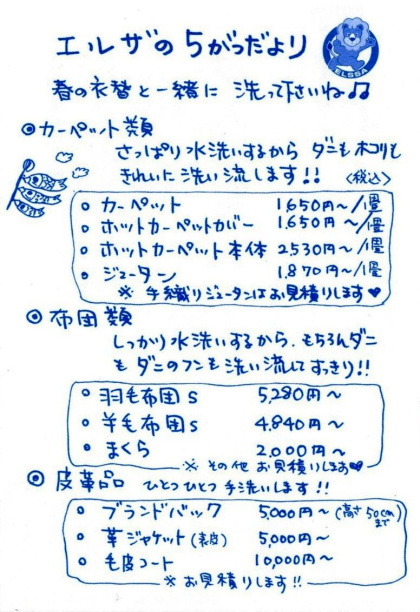 エルザの5がつだより
ELSSA
春の衣替と一緒に 洗って下さいね♫
◎カーペット類
さっぱり水洗いするから ダニもホコリも
きれいに洗い流します!! <税込>
○ カーペット 1,650円〜/畳
○ ホットカーペットカバー 1,650円〜/畳
○ ホットカーペット本体 2,530円〜/畳
○ ジュータン 1,870円〜/畳
※ 手織りジュータンはお見積りします♥
◎ 布団類
しっかり水洗いするから、もちろんダニ
も ダニのフンも洗い流してすっきり!!
○ 羽毛布団S 5,280円〜
○ 羊毛布団S 4,840円〜
○ まくら 2,000円〜
※ その他 お見積りします♥
◎ 皮革品 ひとつひとつ手洗いします!!
○ ブランドバック 5,000円〜(高さ50cmまで)
○ 革ジャケット(表皮) 5,000円〜
○ 毛皮コート 10,000円〜
※お見積りします!!